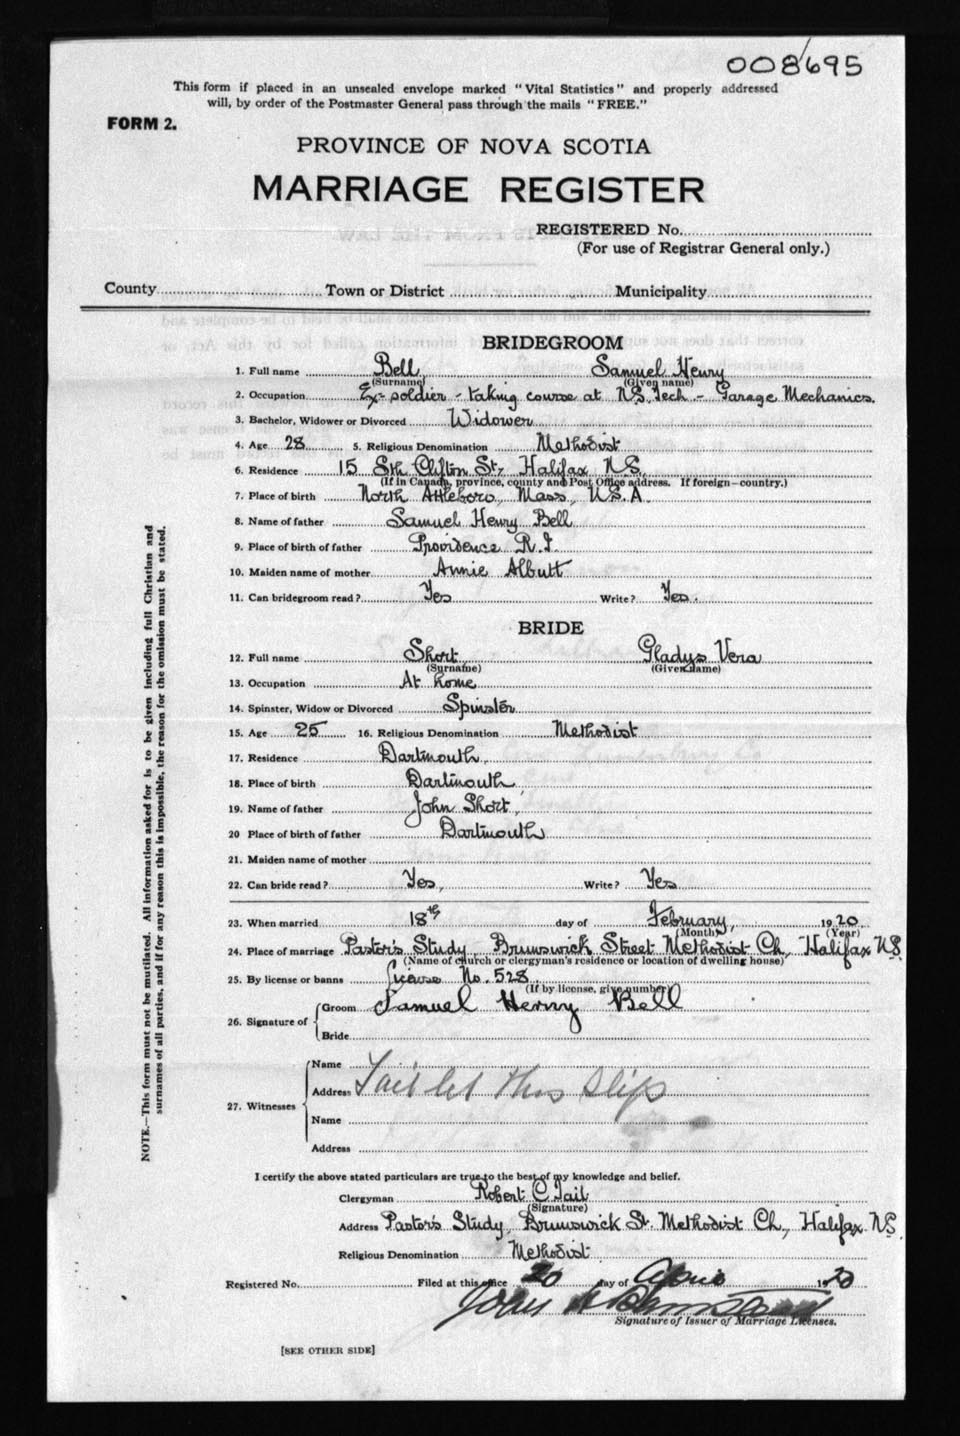 008695
This form if placed in an unsealed envelope marked "Vital Statistics" and properly addressed
will, by order of the Postmaster General pass through the mails "FREE."
FORM 2.
PROVINCE OF NOVA SCOTIA
MARRIAGE REGISTER
REGISTERED No.
(For use of Registrar General only.)
County Town or District Municipality
BRIDEGROOM
1. Full name Bell Samuel Henry
(Surname) (Given name)
2. Occupation Ex-soldier - taking course at N.S. Tech - Garage Mechanics.
3. Bachelor, Widower or Divorced Widower
4. Age 28 5. Religious Denomination Methodist
6. Residence 15 Sth Clifton St, Halifax N.S.
(If in Canada, province, county and Post Office address. If foreign—country.)
7. Place of birth North Attleboro, Mass., U.S.A.
8. Name of father Samuel Henry Bell
9. Place of birth of father Providence R.I.
10. Maiden name of mother Annie Albutt
11. Can bridegroom read? Yes Write? Yes.
BRIDE
12. Full name Short Gladys Vera
(Surname) (Given name)
13. Occupation At home
14. Spinster, Widow or Divorced Spinster
15. Age 25 16. Religious Denomination Methodist
17. Residence Dartmouth
18. Place of birth Dartmouth
19. Name of father John Short
20 Place of birth of father Dartmouth
21. Maiden name of mother
22. Can bride read? Yes, Write? Yes
23. When married 18th day of February, 1920
(Month) (Year)
24. Place of marriage Pastor's Study, Brunswick Street Methodist Ch, Halifax N.S.
(Name of church or clergyman's residence or location of dwelling house)
25. By license or banns license No. 528
(If by license, give number)
26. Signature of Groom Samuel Henry Bell
Bride
27. Witnesses Name
Address this slip
Name
Address
I certify the above stated particulars are true to the best of my knowledge and belief.
Clergyman Robert C Tait
(Signature)
Address Pastor's Study, Brunswick St. Methodist Ch, Halifax N.S.
Religious Denomination Methodist
Registered No. Filed at this office 20 day of April 1920
Signature of Issuer of Marriage Licenses.
[SEE OTHER SIDE]
NOTE.—This form must not be mutilated. All information asked for is to be given including full Christian and
surnames of all parties, and if for any reason this is impossible, the reason for the omission must be stated.